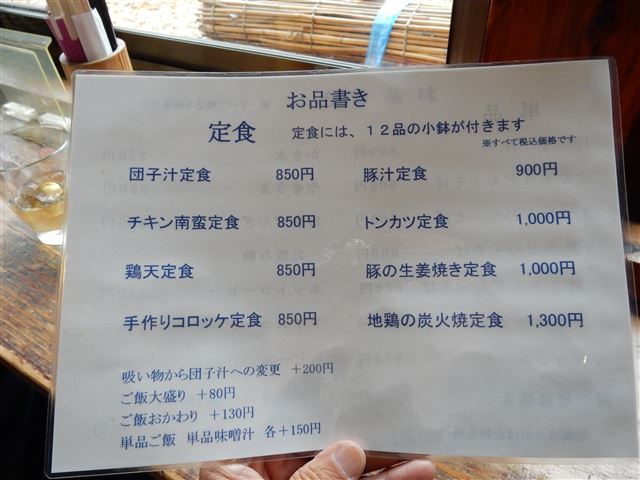 お品書き
定食 定食には、１２品の小鉢が付きます
※すべて税込価格です
団子汁定食 850円 豚汁定食 900円
チキン南蛮定食 850円 トンカツ定食 1,000円
鶏天定食 850円 豚の生姜焼き定食 1,000円
手作りコロッケ定食 850円 地鶏の炭火焼定食 1,300円
吸い物から団子汁への変更 +200円
ご飯大盛り +80円
ご飯おかわり +130円
単品ご飯 単品味噌汁 各+150円